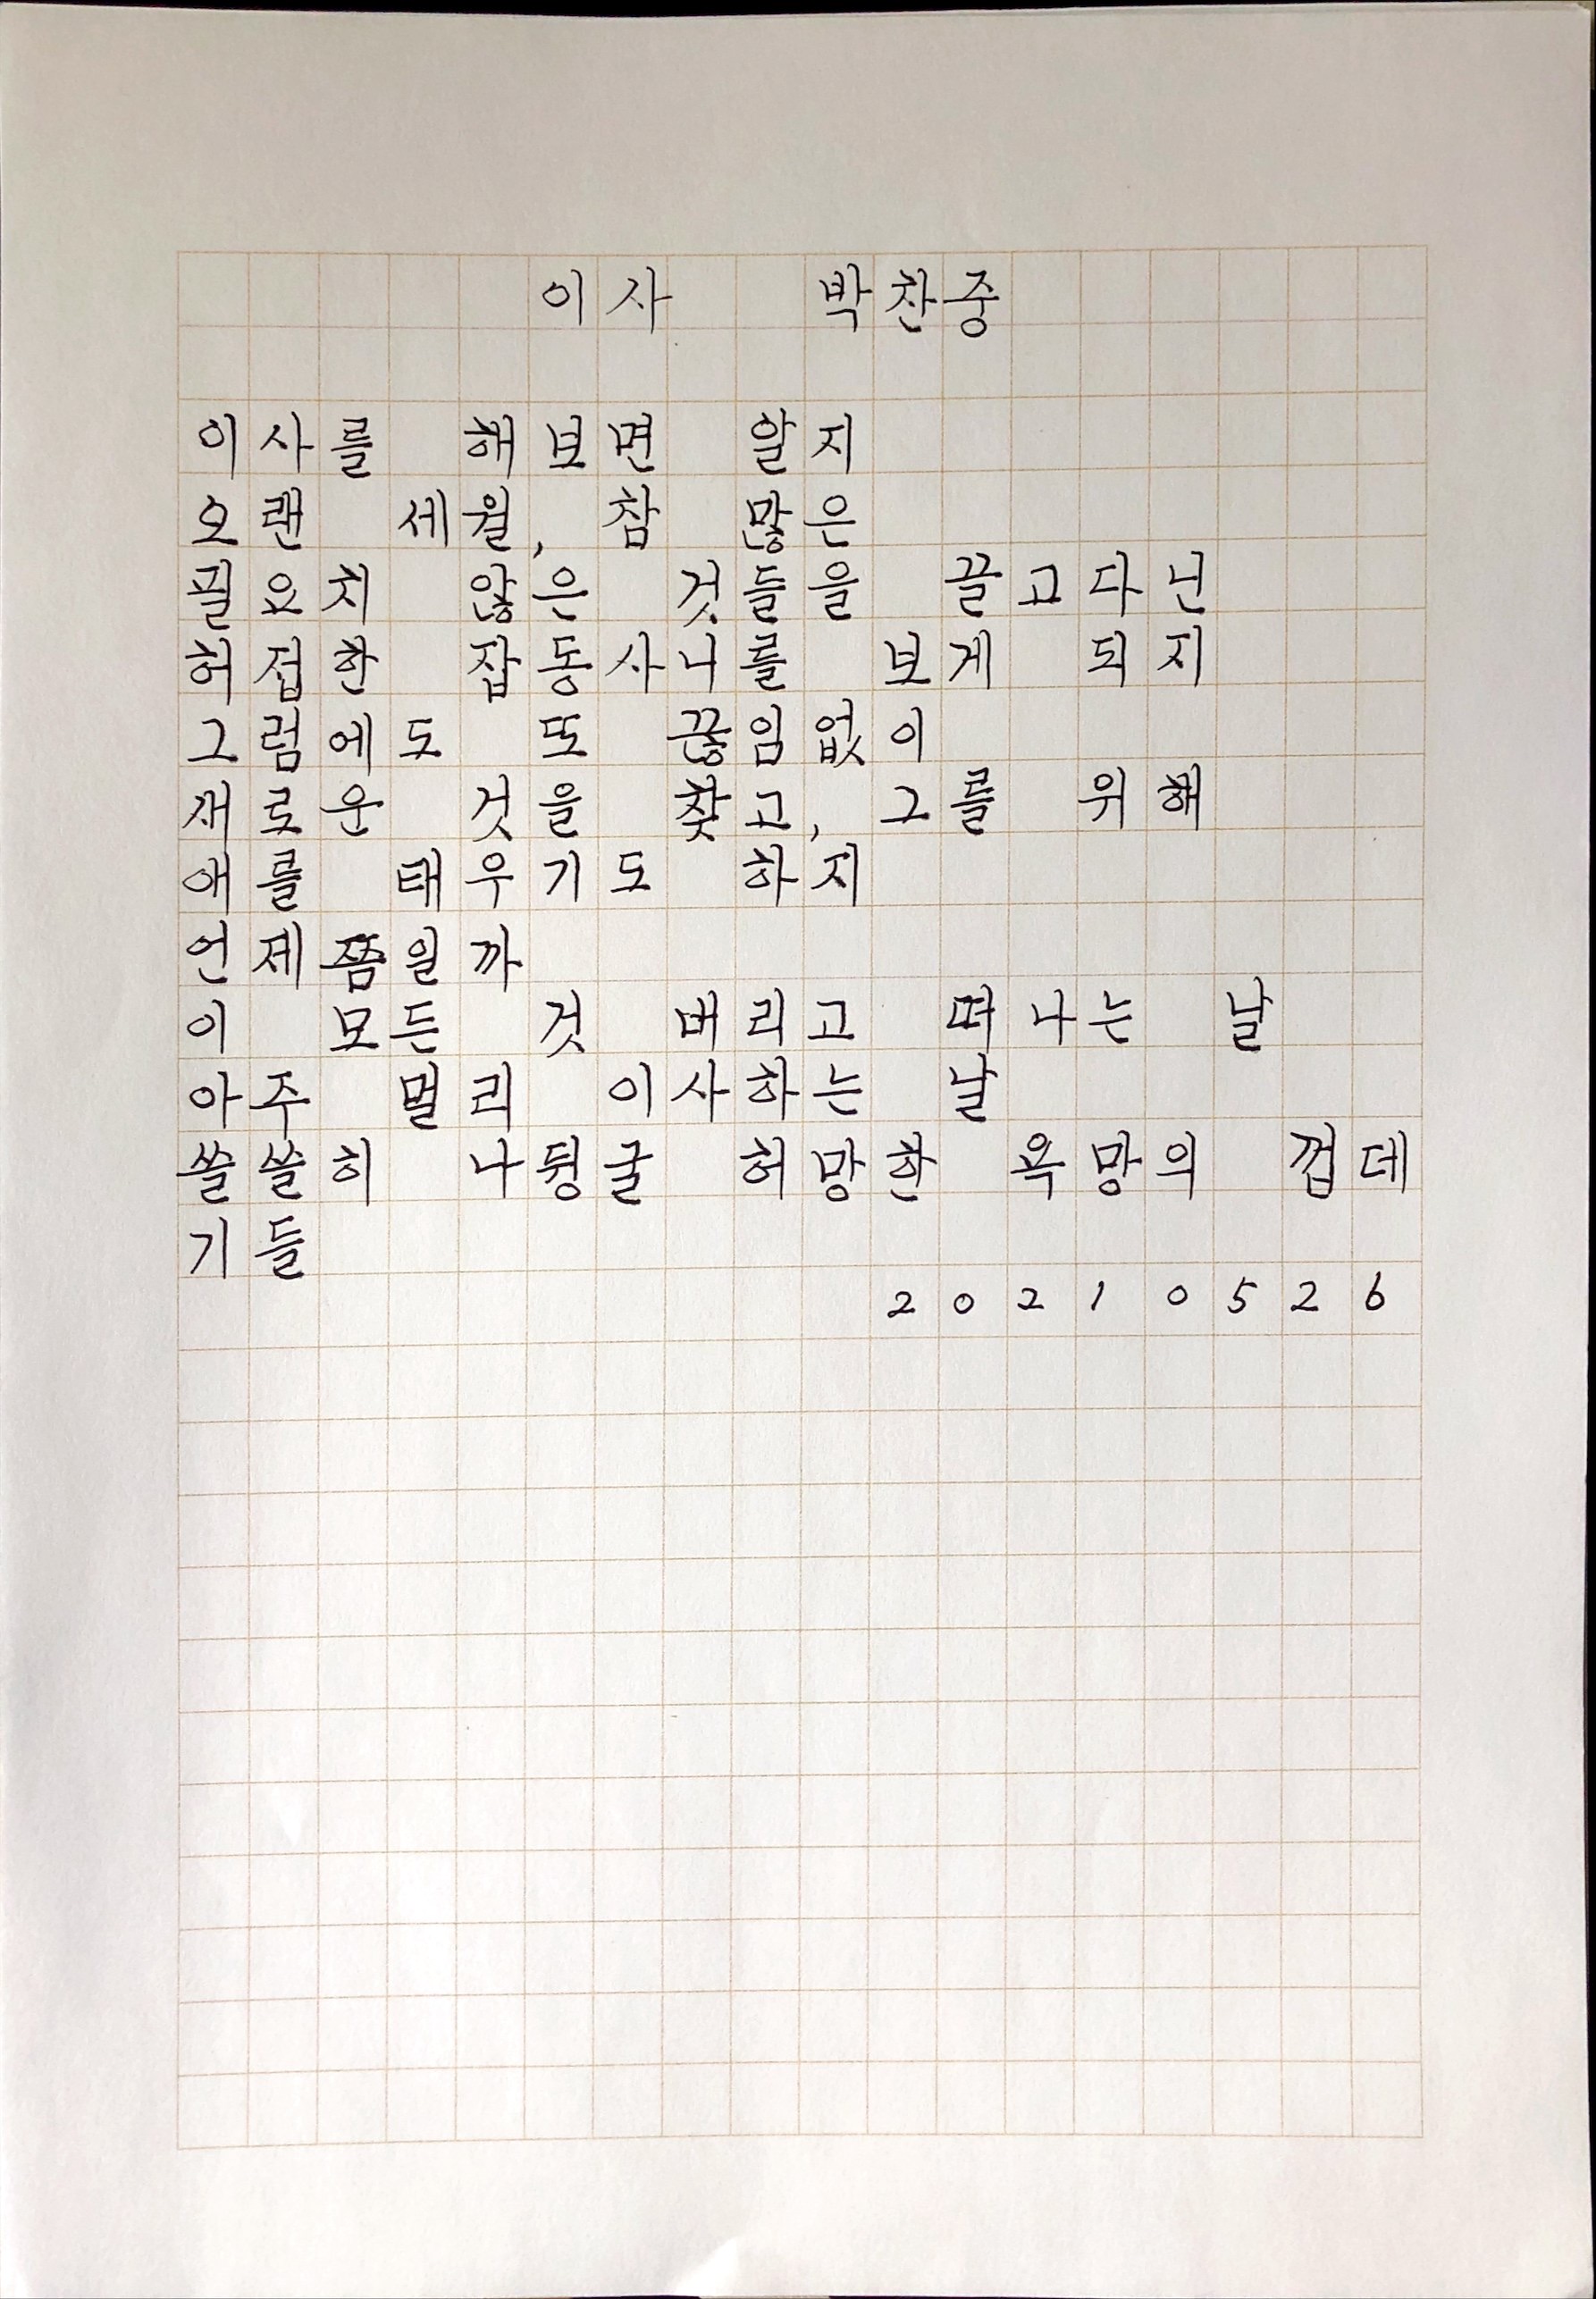 이사 박찬중
이사를 해보면 알지
오랜 세월, 참 많은
필요치 않은 것들을 끌고다닌
허접한 잡동사니를 보게 되지
그럼에도 또 끊임없이
새로운 것을 찾고, 그를 위해
애를 태우기도 하지
언제쯤일까
이 모든 것 버리고 떠나는 날
아주 멀리 이사하는 날
쓸쓸히 나뒹굴 허망한 욕망의 껍데
기들
20210526